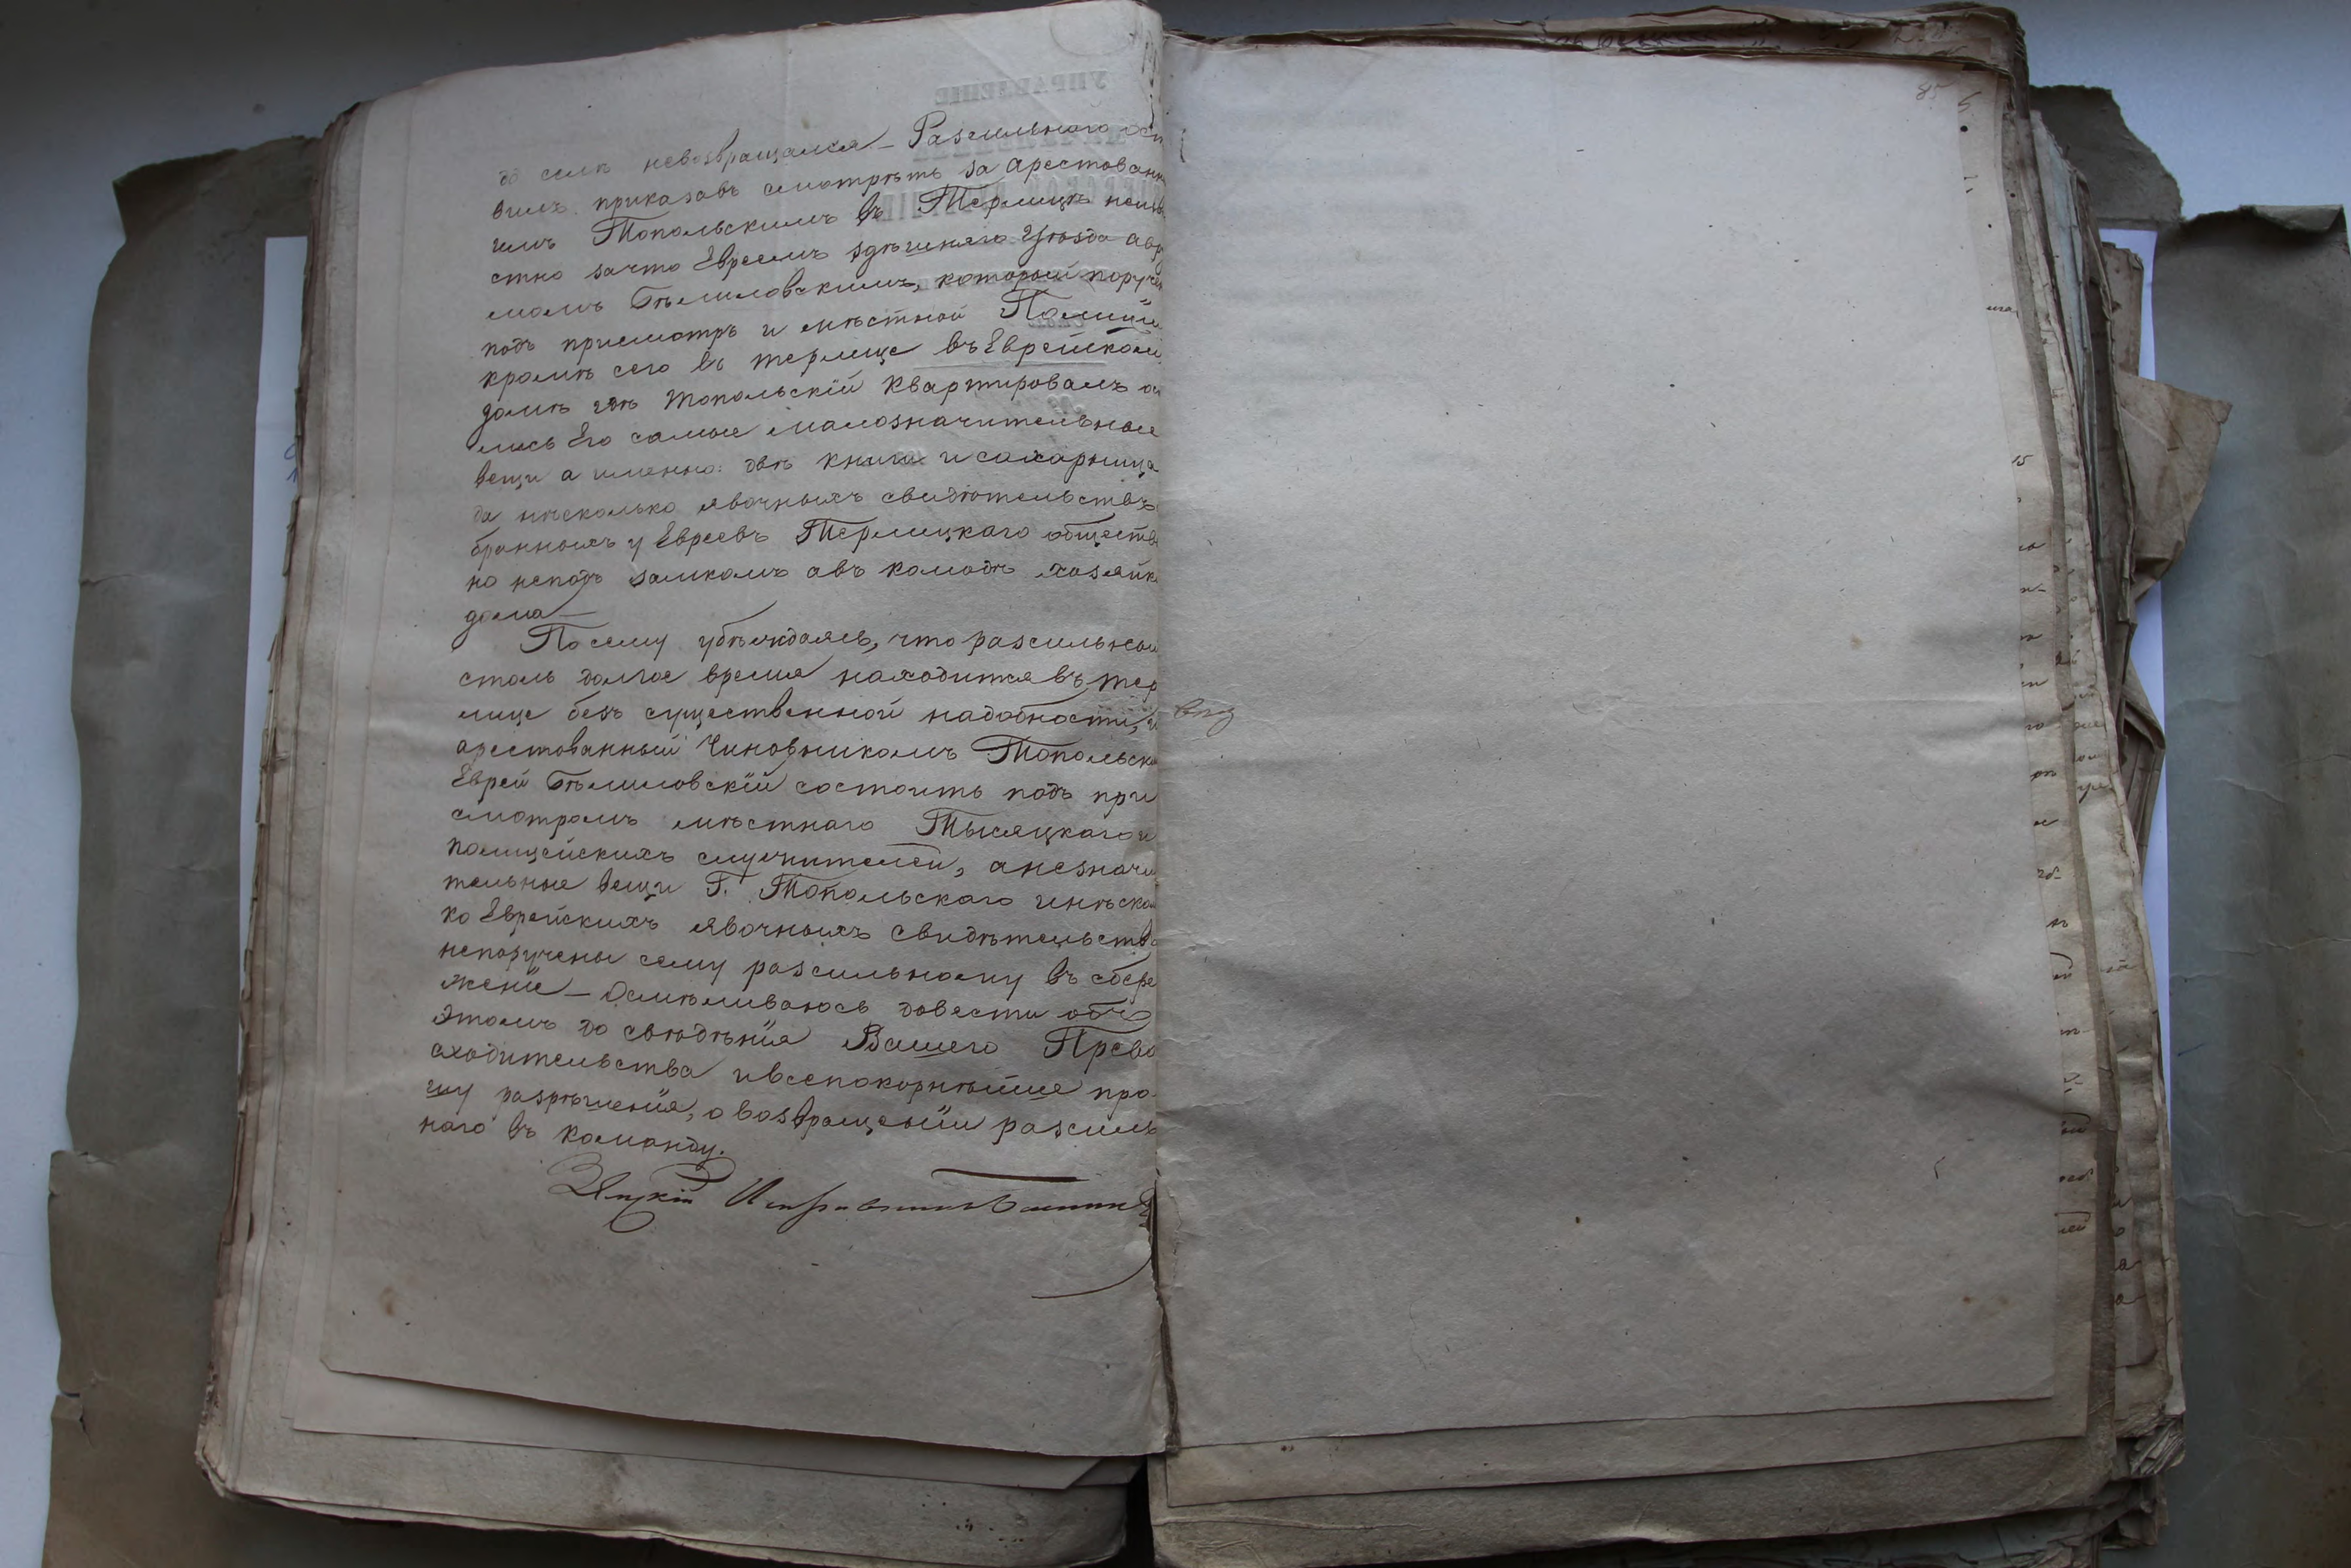 до селѣ невозвращался – Разсыльного ост
вилъ приказавъ смотрѣть за арестованн
ымъ Топольскимъ въ Терлицѣ неизвѣ
стно зачто Евреемъ здѣшняго Уѣзда Авр
момъ Бѣлиловскимъ, который поруче
подъ присмотръ и мѣстной Полиціи
кромѣ сего въ терлице въ Еврейском
домѣ гдѣ Топольскій квартировалъ ос
лись Его самые малозначительные
вещи а именно: двѣ книги и сахарница
да нѣсколько явочныхъ свидѣтельствъ
бранныхъ у Евреевъ Терлицкаго обществ
но неподъ замкомъ авъ комодѣ хозяйк
дома –
По сему убѣждаясь, что разсыльной
столь долгое время находится въ тер
лице безъ существенной надобности, и
арестованный Чиновникомъ Топольски
Еврей Бѣлиловскій состоитъ подъ при
смотромъ мѣстнаго Тысяцкаго и
полицейскихъ служителей, анезначи
тельные вещи Г. Топольскаго инѣскол
ко Еврейскихъ явочныхъ свидѣтельств
непоручены сему разсыльному въ сбере
женіе – Осмѣливаюсь довести объ
этомъ до свѣдѣнія Вашего Прево
сходительства ивсепокорнѣйше про
шу разрѣшенія, о возвращеніи разсыль
наго въ команду.
Исправникъ
85